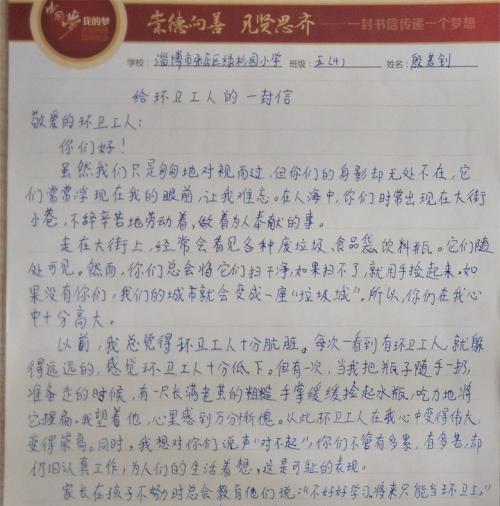 中国梦 我的梦
崇德向善 见贤思齐 一封书信传递一个梦想
学校：淄博市张店区绿杉园小学 班级：五(4) 姓名：殷茗钊
给环卫工人的一封信
敬爱的环卫工人：
你们好！
虽然我们只是匆匆地对视而过，但你们的身影却无处不在，它
们常常浮现在我的眼前，让我难忘。在人海中，你们时常出现在大街
小巷，不辞辛苦地劳动着，做着为人奉献的事。
走在大街上，经常会看见各种废垃圾、食品袋、饮料瓶。它们随
处可见。然而，你们总会将它们扫干净，如果扫不了，就用手捡起来。如
果没有你们，我们的城市就会变成一座“垃圾城”。所以，你们在我心
中十分高大。
以前，我总觉得环卫工人十分肮脏。每次一看到有环卫工人，就躲
得远远的，感觉环卫工人十分低下。但有一次，当我把瓶子随手一扔，
准备走的时候，有一只长满老茧的粗糙手掌缓缓捡起水瓶，吃力地将
它捏扁。我望着他，心里感到万分惭愧。从此环卫工人在我心中变得伟大，
变得崇高。同时，我想对你们说声“对不起”，你们不管有多累，有多苦，却
仍旧认真工作，为人们的生活着想，这是可耻的表现。
家长在孩子不努力时总会教育他们说：“不好好学习，将来只能当环卫工。”